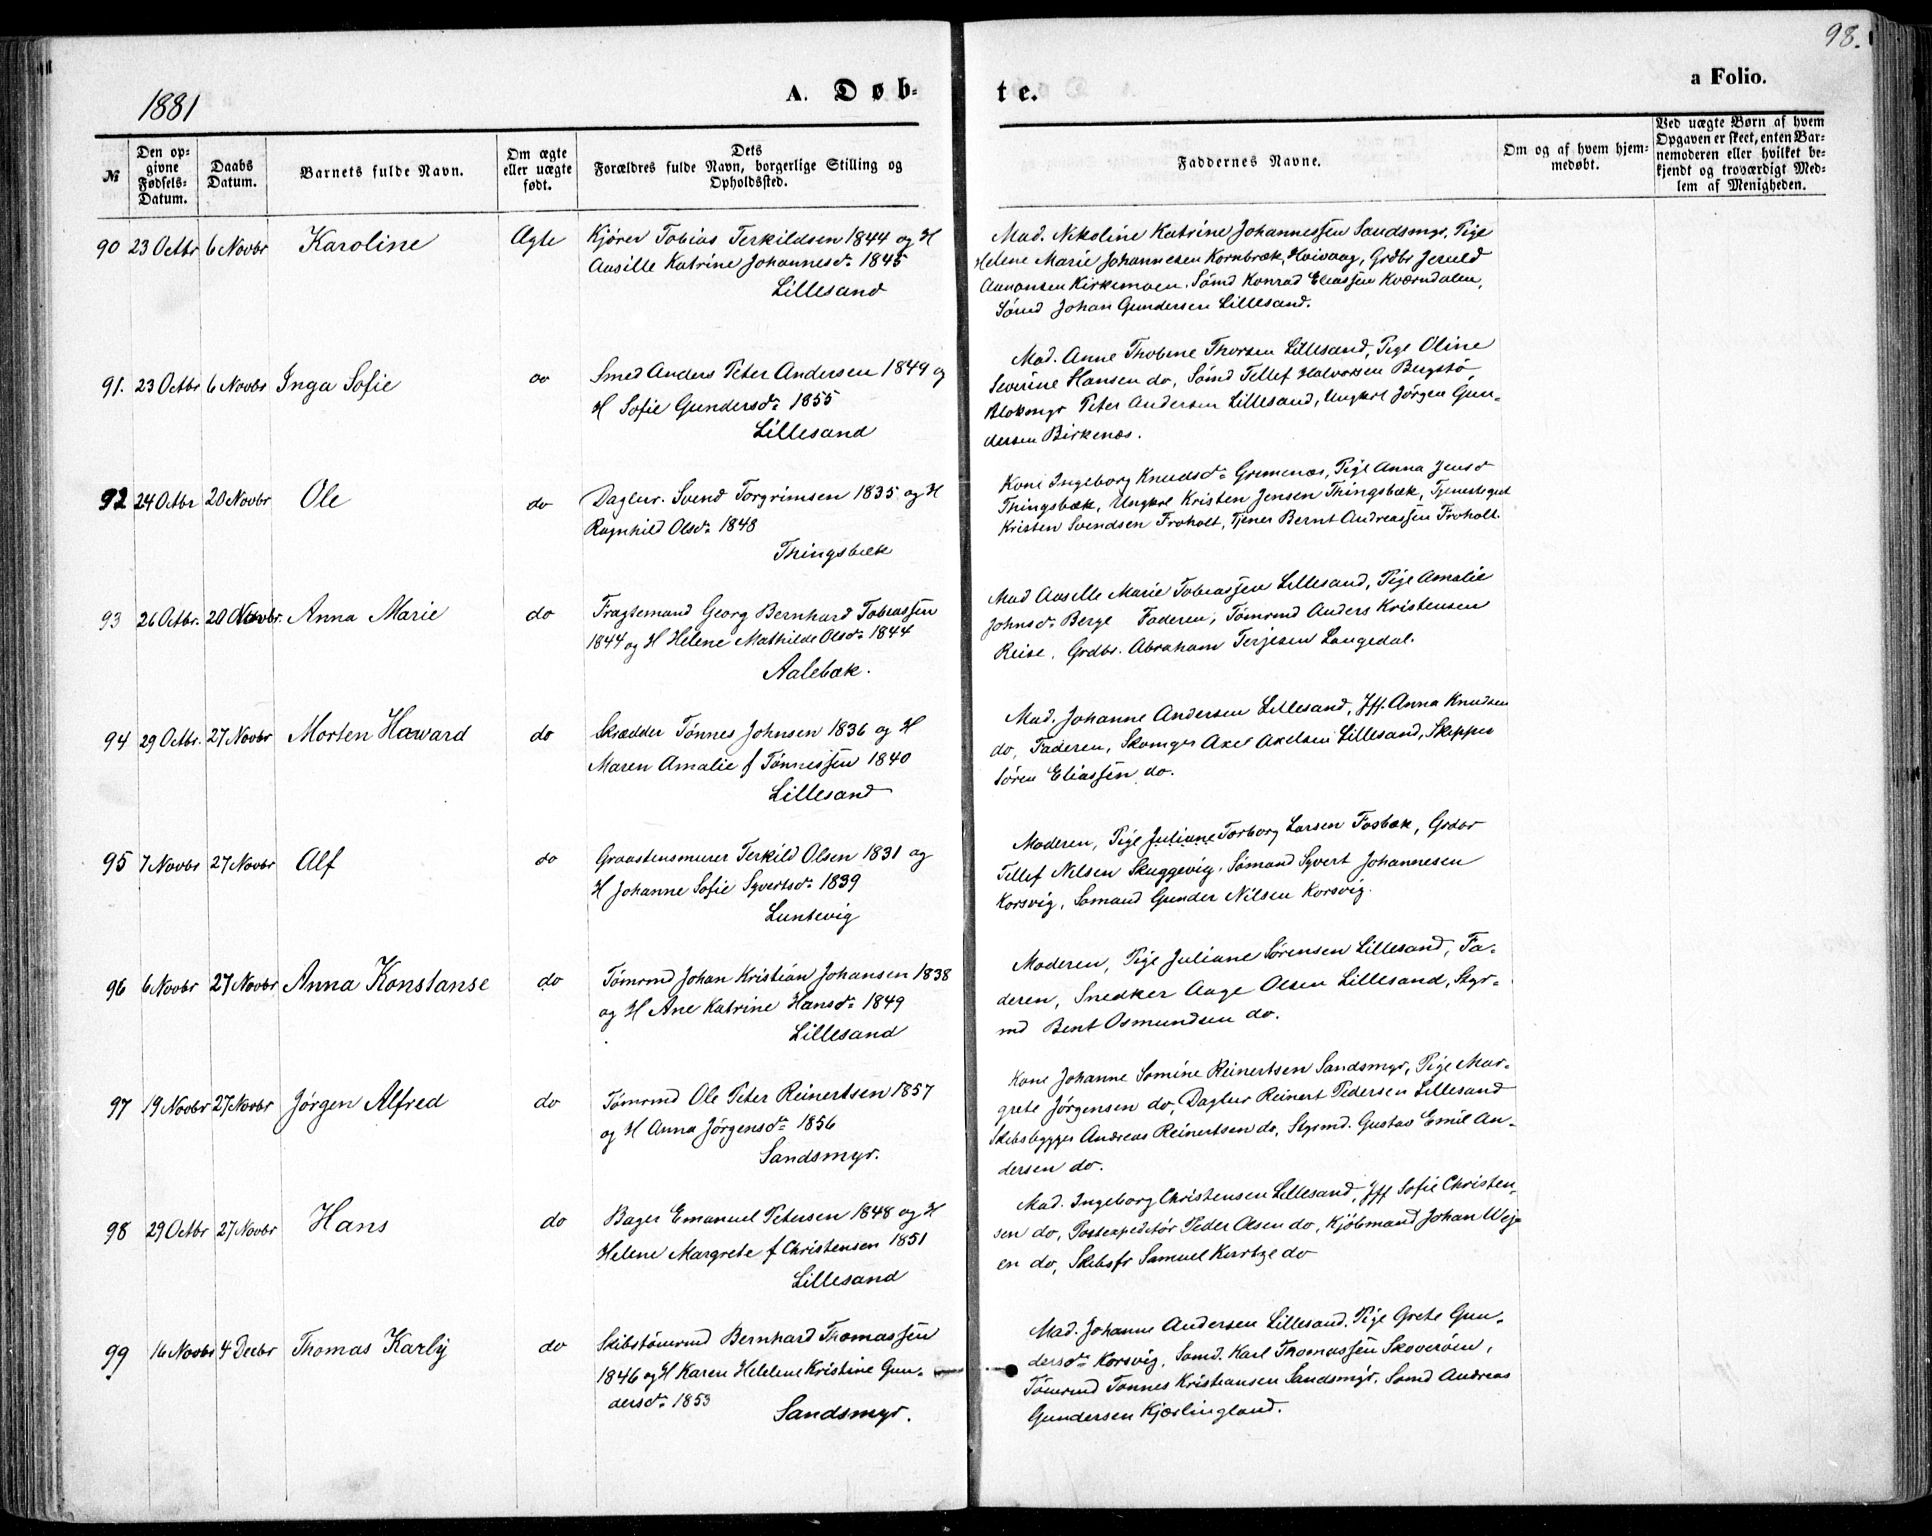 98.
1881
A. Døb-
te.
a Folio.
№
Den op-
givne
Fødsels-
Datum.
Daabs
Datum.
Barnets fulde Navn.
Om ægte
eller uægte
født.
Dets
Forældres fulde Navn, borgerlige Stilling og
Opholdssted.
Faddernes Navne.
Om og af hvem hjem-
medøbt.
Ved uægte Børn af hvem
Opgaven er skeet, enten Bar-
nemoderen eller hvilket be-
kjendt og troværdigt Med-
lem af Menigheden.
90 23 Octbr 6 Novbr Karoline Ægte Kjører Tobias Terkildsen 1844 og H
Aasille Katrine Johannesdr 1845
Lillesand
Mad. Nikoline Katrine Johannessen Sandsmyr, Pige
Helene Marie Johannesen Kornbræk, Høivaag, Grdbr Jeruld
Aanonsen Kirkemoen, Sømd Konrad Eliassen Kværndalen,
Sømd Johan Gundersen Lillesand.
91. 23 Octbr 6 Novbr Inga Sofie do Smed Anders Peter Andersen 1849 og
H Sofie Gundersdr 1855
Lillesand
Mad. Anne Thobine Thorsen Lillesand, Pige Oline
Severine Hansen do, Sømd Tellef Halvorsen Bergstø
Blokmgr Peter Andersen Lillesand, Ungkrl Jørgen Gun-
dersen Birkenæs.
92 24 Octbr 20 Novbr Ole do Daglnr. Svend Torgrimsen 1835 og H
Ragnhild Olsdr 1848
Thingsbæk
Kone Ingeborg Knudsdr Grimenæs, Pige Anna Jensd
Thingsbæk, Ungkrl Kristen Jensen Thingsbæk, Tjenestegut
Kristen Svendsen Froholt, Tjener Bernt Andreassen Froholt.
93 26 Octbr. 20 Novbr. Anna Marie do Fragtemand Georg Bernhard Tobiassen
1844 og H Helene Mathilde Olsdr 1844
Aalebæk.
Mad Aasille Marie Tobiassen Lillesand, Pige Amalie
Johnsdr Berge Faderen, Tømrmd Anders Kristensen
Reise, Grdbr. Abraham Terjesen Langedal.
94 29 Octbr. 27 Novbr Morten Haward do Skrædder Tønnes Johnsen 1836 og H
Maren Amalie f Tønnessen 1840
Lillesand
Mad. Johanne Andersen Lillesand, Jff. Anna Knudsen
do, Faderen, Skomgr Axel Axelsen Lillesand, Skipper
Søren Eliassen do.
95 7 Novbr 27 Novbr Alf do Graastensmurer Terkild Olsen 1831 og
H Johanne Sofie Syvertsdr 1839
Luntevig
Moderen, Pige Juliane Torborg Larsen Fosbæk, Grdbr
Tellef Nilsen Skuggevig, Sømand Syvert Johannesen
Korsvig, Sømand Gunder Nilsen Korsvig.
96 6 Novbr 27 Novbr Anna Konstanse do Tømrmd Johan Kristian Johansen 1838
og H Ane Katrine Hansdr 1849
Lillesand
Moderen, Pige Juliane Sørensen Lillesand, Fa-
deren, Snedker Aage Olsen Lillesand, Styr-
md Bent Osmundsen do.
97 19 Novbr 27 Novbr Jørgen Alfred do Tømrmd Ole Peter Reinertsen 1857
og H Anna Jørgensdr 1856
Sandsmyr.
Kone Johanne Somine Reinertsen Sandsmyr, Pige Mar-
grete Jørgensen do, Daglnr Reinert Pedersen Lillesand
Skibsbygger Andreas Reinertsen do, Styrmd. Gustav Emil An-
dersen do.
98 29 Octbr 27 Novbr Hans do Bager Emanuel Petersen 1848 og H
Helene Margrete f Christensen 1851
Lillesand
Mad. Ingeborg Christensen Lillesand, Jff Sofie Christen-
sen do, Postexpeditør Peder Olsen do, Kjøbmand Johan Wej-
en do, Skibsfr Samuel do
99 16 Novbr 4 Decbr Thomas Karly do Skibstømrmd Bernhard Thomassen
1846 og H Karen Helene Kristine Gun-
dersdr 1853
Sandsmyr.
Mad. Johanne Andersen Lillesand. Pige Grete Gun-
dersdr Korsvig, Sømd. Karl Thomassen Skoverøen,
Tømrmd Tønnes Kristiansen Sandsmyr, Sømd Andreas
Gundersen Kjærlingland.